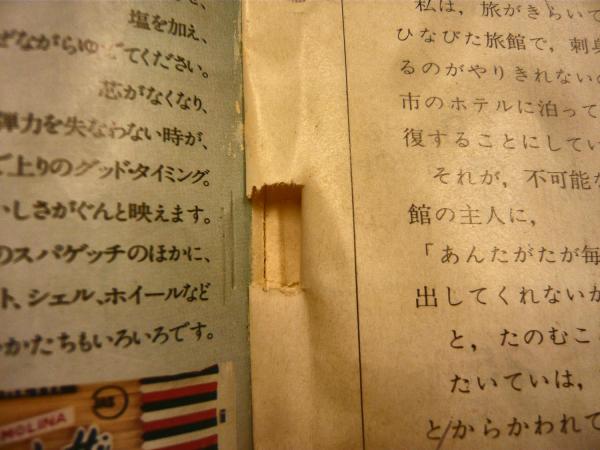 塩を加え、
ぜながらゆでてください。
芯がなくなり、
弾力を失なわない時が、
で上りのグッド・タイミング。
いしさがぐんと映えます。
のスパゲッチのほかに、
ト、シェル、ホイールなど
かたちもいろいろです。
MOLINA
JAS
私は，旅がきらいで
ひなびた旅館で，刺身
るのがやりきれない
市のホテルに泊って
復することにしてい
それが，不可能な
館の主人に，
「あんたがたが毎
出してくれないか
と，たのむこ
たいていは，
とからかわれて